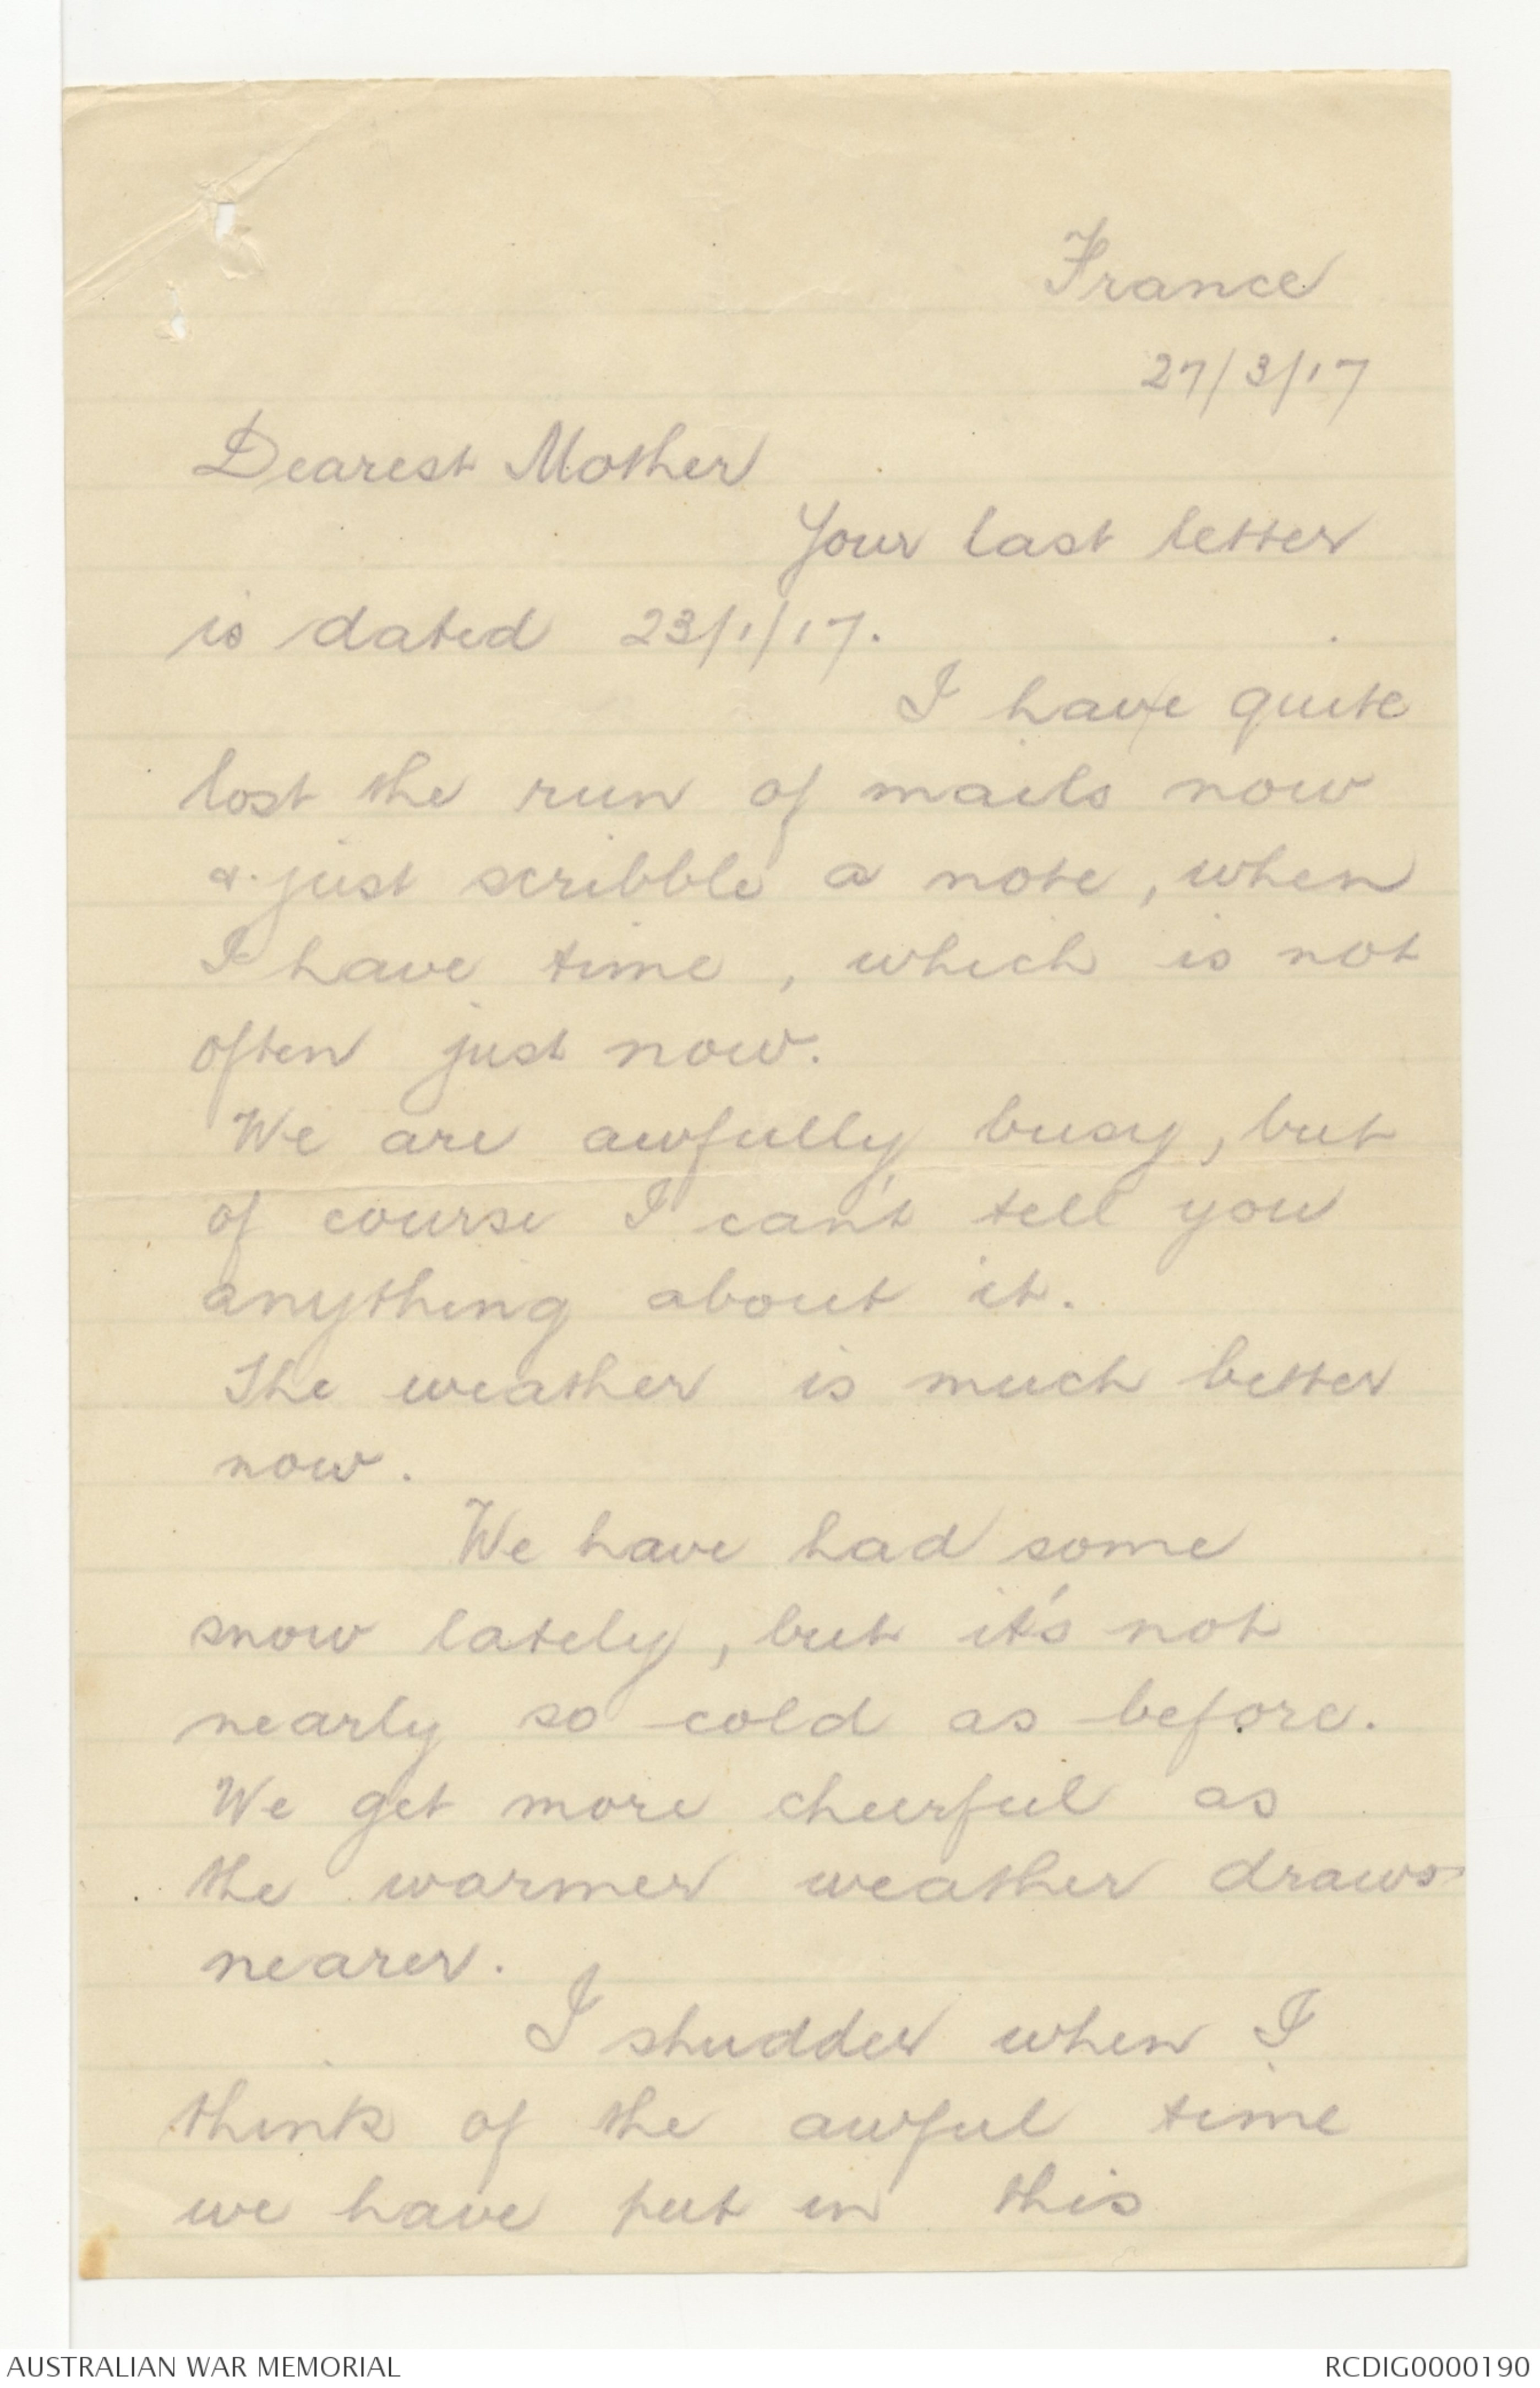 France
27/3/17
Dearest Mother
Your last letter
is dated 23/1/17.
I have quite
lost the run of mails now
& just scribble a note, when
I have time, which is not
often just now.
We are awfully busy, but
of course I can't tell you
anything about it.
The weather is much better
now.
We have had some
snow lately, but it's not
nearly so cold as before.
We get more cheerful as
the warmer weather draws
nearer.
I shudder when I
think of the awful time
we have put in this
AUSTRALIAN WAR MEMORIAL
RCDIG0000190